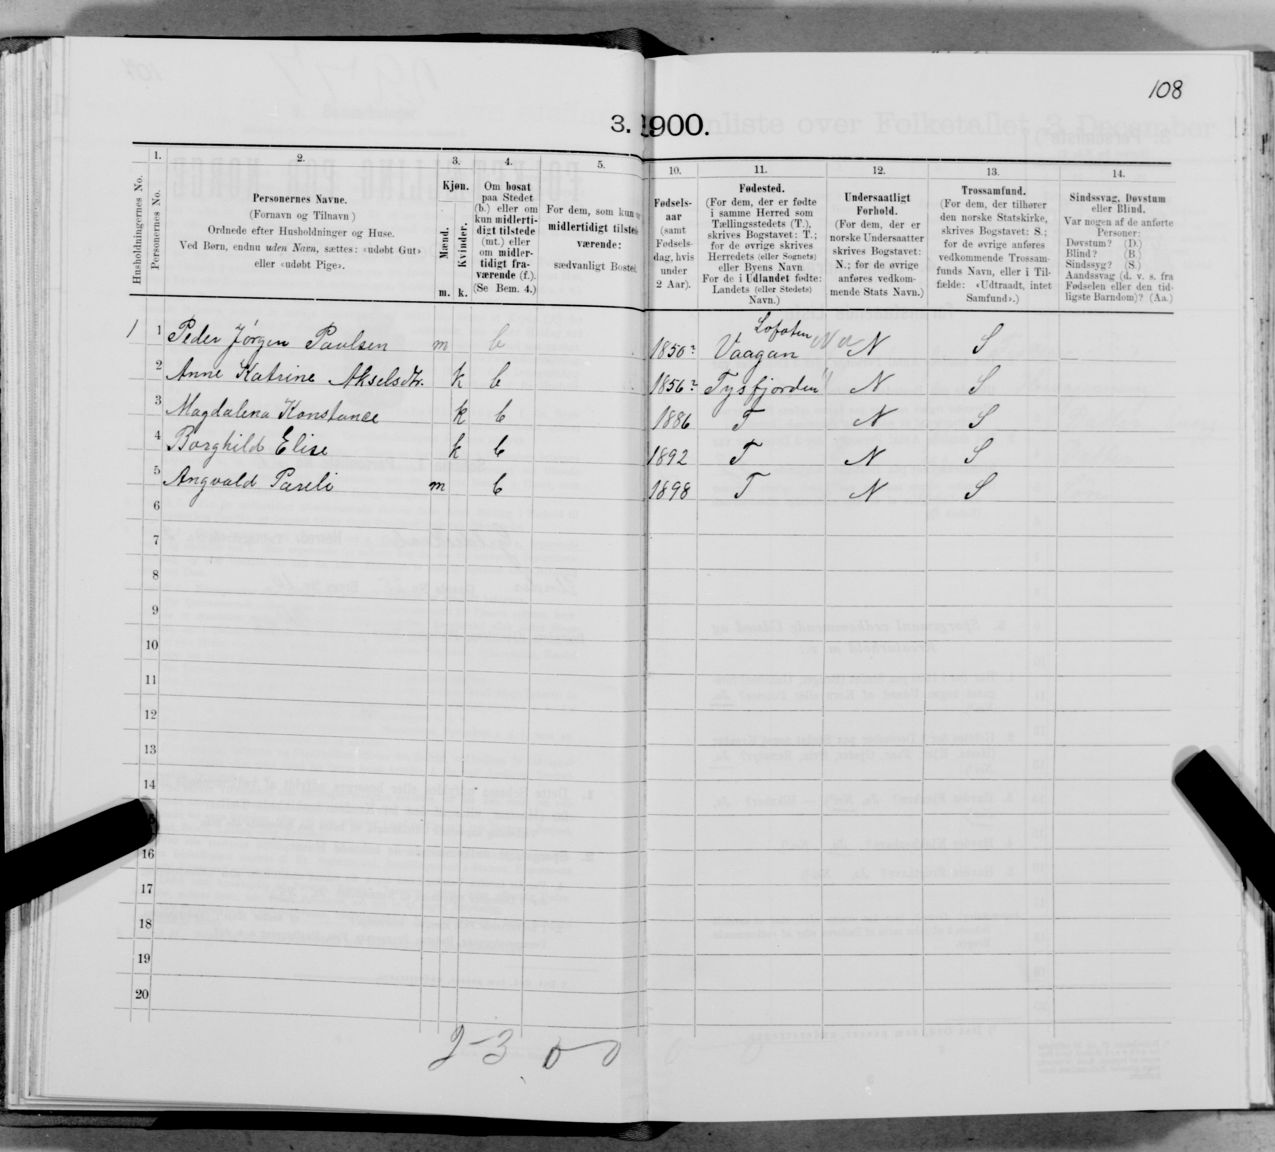 108
3. 1900.
Husholdningernes No.
1.
Personernes No.
2.
Personernes Navne.
(Fornavn og Tilnavn)
Ordnede efter Husholdninger og Huse.
Ved Børn, endnu uden Navn, sættes: «udøbt Gut»
eller «udøbt Pige».
3.
Kjøn.
Mænd.
Kvinder.
m. k.
4.
Om bosat
paa Stedet
(b.) eller om
kun midlerti-
digt tilstede
(mt.) eller
om midler-
tidigt fra-
værende (f.).
(Se Bem. 4.)
5.
For dem, som kun
midlertidigt tilstede-
værende:
sædvanligt Bosted.
10.
Fødsels-
aar
(samt
Fødsels-
dag, hvis
under
2 Aar).
11.
Fødested.
(For dem, der er fødte
i samme Herred som
Tællingsstedets (T.),
skrives Bogstavet: T.;
for de øvrige skrives
Herredets (eller Sognets)
eller Byens Navn
For de i Udlandet fødte:
Landets (eller Stedets)
Navn.)
12.
Undersaatligt
Forhold.
(For dem, der er
norske Undersaatter
skrives Bogstavet:
N.; for de øvrige
anføres vedkom-
mende Stats Navn.)
13.
Trossamfund.
(For dem, der tilhører
den norske Statskirke,
skrives Bogstavet: S.;
for de øvrige anføres
vedkommende Trossam-
funds Navn, eller i Til-
fælde: «Udtraadt, intet
Samfund».)
14.
Sindssvag, Døvstum
eller Blind.
Var nogen af de anførte
Personer:
Døvstum? (D.)
Blind? (B.)
Sindssyg? (S.)
Aandssvag (d. v. s. fra
Fødselen eller den tid-
ligste Barndom)? (Aa.)
Lofoten
1 1 Peder Jørgen Paulsen m b 1850? Vaagan N S
2 Anne Katrine Akselsdtr. k b 1856? Tysfjorden " N S
3 Magdalena Konstance k b 1886 T N S
4 Borghild Elise k b 1892 T N S
5 Angvald Pareli m b 1898 T N S
6
7
8
9
10
11
12
13
14
16
17
18
19
20
2-3 0 0 0 0